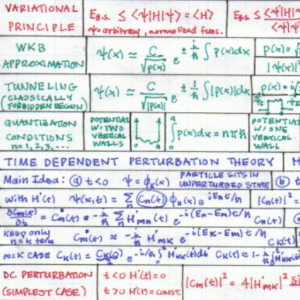 VARIATIONAL PRINCIPLE
E_g.s. ≤ <ψ|H|ψ> = <H>
ψ = arbitrary, normalized func.
E_g.s. ≤ <ψ|H
WKB APPROXIMATION
ψ(x) ≈ C/√p(x) e^{± i/ħ ∫p(x)dx}
p(x) =
|ψ(x)|²
TUNNELING (CLASSICALLY FORBIDDEN REGION)
ψ(x) ≈ C/√|p(x)| e^{± 1/ħ ∫|p(x)|dx}
p(x) =
QUANTIZATION CONDITIONS
n=1,2,3,...
POTENTIAL W/ TWO VERTICAL WALLS
∫p(x)dx = nπħ
POTENTIAL W/ ONE VERTICAL
TIME DEPENDENT PERTURBATION THEORY
Main Idea: ⓐ t<0 ψ = φ_k(x) PARTICLE SITS IN UNPERTURBED STATE ⓑ
with H'(t) ψ(x,t) = Σ C_n(t) φ_n(x) e^{-iE_n t/ħ}
|C_m(t)|²
∂C_m(t) = Ċ_m(t) = -i/ħ Σ H'_mn(t) e^{-i(E_n-E_m)t/ħ} C_n(t)
keep only n=k term Ċ_m(t) ≈ -i/ħ H'_mk e^{-i(E_k-E_m)t/ħ} C_k(t)
m=k CASE
DC PERTURBATION (SIMPLEST CASE)
t<0 H'(t)=0
t>0 H'(t)=CONST.
|C_m(t)|² = 4|H'_mk|²